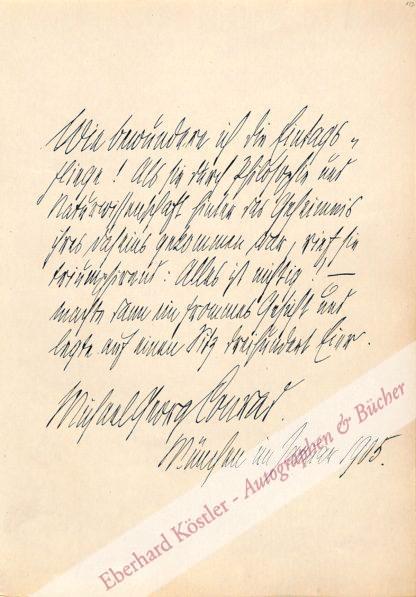 Wie bewundere ich die Eintags-
fliege! Als sie durch Philosophie und
Naturwissenschaft hinter das Geheimnis
ihres Daseins gekommen war, rief sie
triumphirend: Alles ist nichtig! –
machte dann ein frommes Gesicht und
legte auf einen Sitz dreihundert Eier.
Michael Georg Conrad.
München im Januar 1905.
Eberhard Köstler - Autographen & Bücher